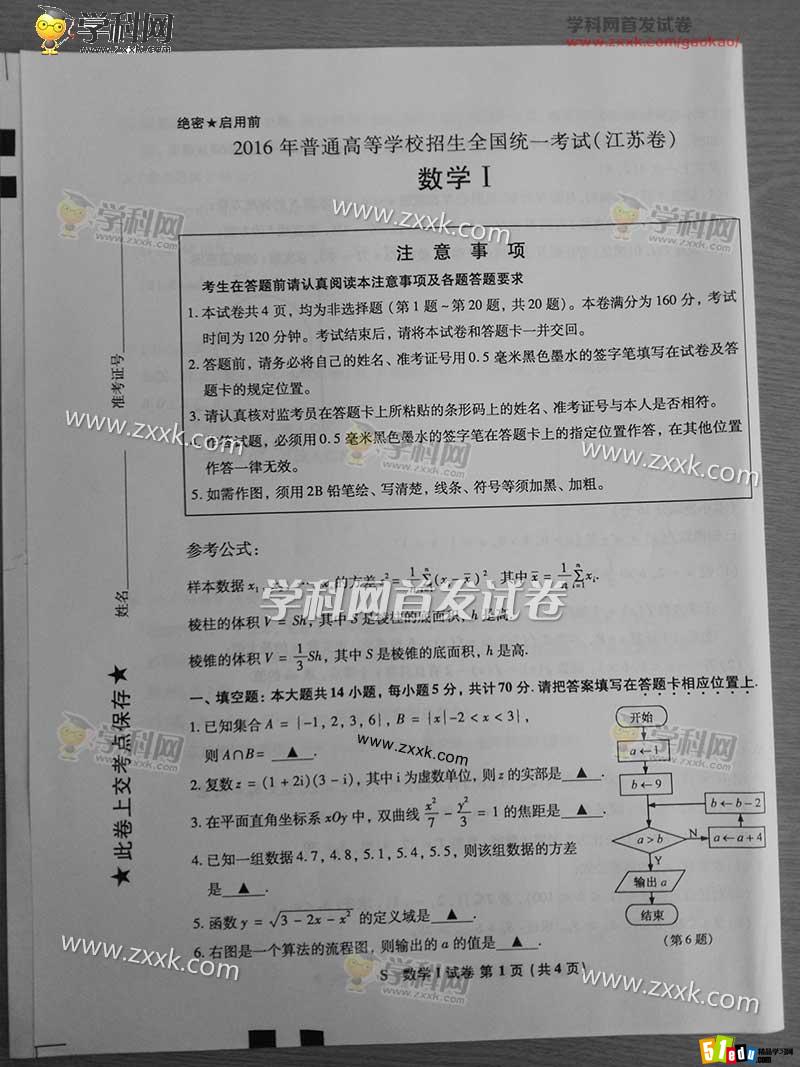 学科网
www.zxxk.com
学科网首发试卷
www.zxxk.com/gaokao/
绝密★启用前
2016 年普通高等学校招生全国统一考试(江苏卷)
数学 I
学科网
www.zxxk.com
学科网
注 意 事 项
考生在答题前请认真阅读本注意事项及各题答题要求
1. 本试卷共 4 页，均为非选择题（第 1 题~第 20 题，共 20 题）。本卷满分为 160 分，考试
时间为 120 分钟。考试结束后，请将本试卷和答题卡一并交回。
2. 答题前，请务必将自己的姓名、准考证号用 0.5 毫米黑色墨水的签字笔填写在试卷及答
题卡的规定位置。
3. 请认真核对监考员在答题卡上所粘贴的条形码上的姓名、准考证号与本人是否相符。
作答试题，必须用 0.5 毫米黑色墨水的签字笔在答题卡上的指定位置作答，在其他位置
作答一律无效。
5. 如需作图，须用 2B 铅笔绘、写清楚，线条、符号等须加黑、加粗。
www.zxxk.com
学科网
www.zxxk.com
准考证号
姓名
★此卷上交考点保存★
参考公式:
样本数据 x₁, 的方差 s² = 1/n ∑(xᵢ - x̄)², 其中 x̄ = 1/n ∑xᵢ.
学科网首发试卷
棱柱的体积 V = Sh, 其中 S 是棱柱的底面积, h 是高.
棱锥的体积 V = 1/3 Sh, 其中 S 是棱锥的底面积, h 是高.
一、填空题: 本大题共 14 小题, 每小题 5 分, 共计 70 分. 请把答案填写在答题卡相应位置上.
1. 已知集合 A = {-1, 2, 3, 6}, B = {x|-2 < x < 3},
则 A∩B = ▲ .
www.zxxk.com
学科网
学科网
2. 复数 z = (1 + 2i)(3 - i), 其中 i 为虚数单位, 则 z 的实部是 ▲ .
3. 在平面直角坐标系 xOy 中, 双曲线 x²/7 - y²/3 = 1 的焦距是 ▲ .
4. 已知一组数据 4.7, 4.8, 5.1, 5.4, 5.5, 则该组数据的方差
是 ▲ .
5. 函数 y = √(3 - 2x - x²) 的定义域是 ▲ .
6. 右图是一个算法的流程图, 则输出的 a 的值是 ▲ .
开始
a←1
b←9
b←b-2
a>b
N
a←a+4
Y
输出 a
结束
(第 6 题)
www.zxxk.com
学科网
www.zxxk.com
S 数学 I 试卷 第 1 页 (共 4 页)
51edu
精品学习网
.com